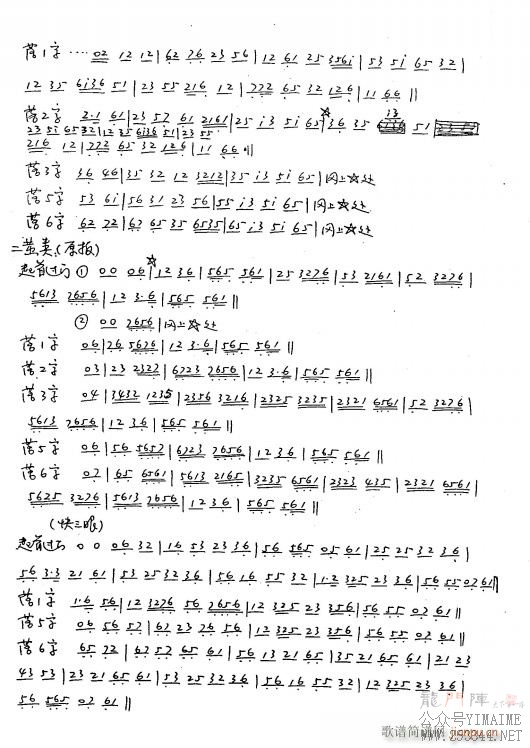 落1字 ···· 02 12 12 | 62 76 23 56 | 12 61 25 356i | 53 5i 65 32 |
12 35 6i36 51 | 23 55 216 12 | 7772 65 32 126 | 11 66 ‖
落2字 2·1 61 | 23 57 61 2161 | 25 i3 5i 65 | ☆36 35 51
23 5i 65 32 | 12 35 6i36 51 | 23 55
216 12 | 7772 65 32 126 | 11 66 ‖
落3字 36 46 | 35 32 12 3212 | 35 i3 5i 65 | 同上☆处
落5字 53 61 | 56 31 23 56 | 55 i3 5i 65 | 同上☆处
落6字 62 72 | 62 65 35 6535 | 65 i3 5i 65 | 同上☆处
二黄类(原板)
起首过门 ① 00 06 | ☆12 36 | 565 561 | 25 3276 | 53 2161 | 52 3276 |
5613 7656 | 12 3·6 | 565 561 ‖
② 00 7656 | 同上☆处
落1字 06 | 76 5676 | 12 3·6 | 565 561 ‖
落2字 03 | 23 2327 | 6723 7656 | 12 36 | 565 561 ‖
落3字 04 | 3432 1235 | 2356 3216 | 2325 3235 | 2321 6561 | 52 3276 |
5613 7656 | 12 36 | 565 561 ‖
落5字 06 | 56 5657 | 6723 7656 | 12 36 | 565 561 ‖
落6字 07 | 65 6561 | 5613 2165 | 3235 6561 | 2323 435 | 2321 6561 |
5625 3276 | 5613 7656 | 12 36 | 565 561 ‖
(快三眼)
起首过门 0 0 06 32 | 16 53 23 36 | 56 565 05 61 | 25 25 32 36 |
56 3·3 21 61 | 53 25 32 36 | 56 16 55 32 | 12 325 23 36 | 56 55 07 61 ‖
落1字 1·6 56 | 12 3276 56 7656 | 12 325 23 356 | 56 55 07 61 ‖
落5字 06 56 57 | 61 23 76 56 | 12 325 23 356 | 56 55 07 61 ‖
落6字 65 72 | 62 57 65 61 | 56 13 21 65 | 35 21 65 61 | 21 23
43 53 | 23 21 65 61 | 56 25 32 36 | 56 16 55 32 | 12 325 23 36 |
56 565 07 61 ‖
龍門陣
公众号YIMAIME
歌谱简谱网